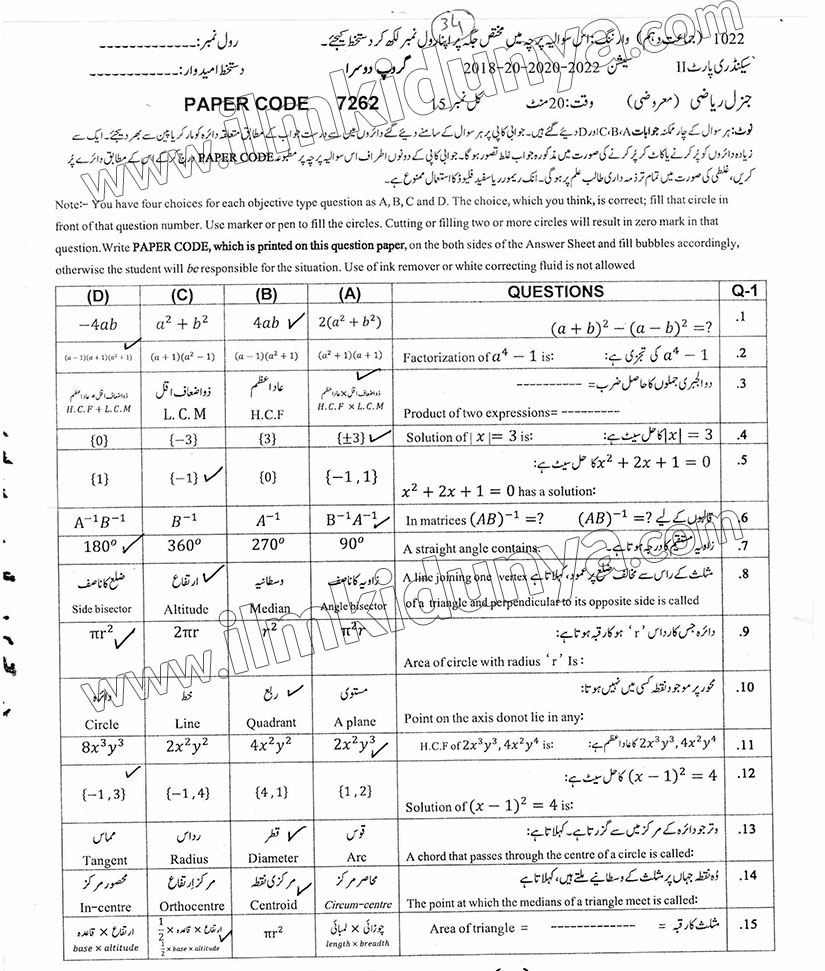 34
1022 - (جماعت دہم) وارننگ: اس سوالیہ پرچہ میں مختص جگہ پر اپنا رول نمبر لکھ کر دستخط کیجئے۔ رول نمبر: -------------
سیکنڈری پارٹ II سیشن 2022-2020-20-2018 گروپ دوسرا دستخط امیدوار: -------------
جنرل ریاضی (معروضی) وقت: 20 منٹ کل نمبر 15 PAPER CODE 7262
نوٹ: ہر سوال کے چار ممکنہ جوابات C،B،A اور D دیئے گئے ہیں۔ جوابی کاپی پر ہر سوال کے سامنے دیئے گئے دائروں میں سے درست جواب کے مطابق متعلقہ دائرہ کو مارکر یا پین سے بھر دیجئے۔ ایک سے
زیادہ دائروں کو پُر کرنے یا کاٹ کر پُر کرنے کی صورت میں مذکورہ جواب غلط تصور ہو گا۔ جوابی کاپی کے دونوں اطراف اس سوالیہ پرچہ پر مطبوعہ PAPER CODE درج کر کے اس کے مطابق دائرے پُر
کریں، غلطی کی صورت میں تمام تر ذمہ داری طالب علم پر ہو گی۔ انک ریموور یا سفید فلیوڈ کا استعمال ممنوع ہے۔
Note:- You have four choices for each objective type question as A, B, C and D. The choice, which you think, is correct; fill that circle in
front of that question number. Use marker or pen to fill the circles. Cutting or filling two or more circles will result in zero mark in that
question.Write PAPER CODE, which is printed on this question paper, on the both sides of the Answer Sheet and fill bubbles accordingly,
otherwise the student will be responsible for the situation. Use of ink remover or white correcting fluid is not allowed
(D) (C) (B) (A) QUESTIONS Q-1
−4ab a² + b² 4ab ✓ 2(a² + b²) (a + b)² − (a − b)² =? .1
(a − 1)(a + 1)(a² + 1) ✓ (a + 1)(a² − 1) (a − 1)(a² + 1) (a² + 1)(a + 1) Factorization of a⁴ − 1 is: a⁴ − 1 کی تجزی ہے: .2
ذواضعاف اقل + عاد اعظم ذواضعاف اقل عاد اعظم ذواضعاف اقل × عاد اعظم ✓ دو الجبری جملوں کا حاصل ضرب= ---------- .3
H.C.F + L.C.M L.C.M H.C.F H.C.F × L.C.M Product of two expressions= ---------
{0} {−3} {3} {±3} ✓ Solution of | x |= 3 is: |x| = 3 کا حل سیٹ ہے: .4
x² + 2x + 1 = 0 کا حل سیٹ ہے: .5
{1} {−1} ✓ {0} {−1, 1} x² + 2x + 1 = 0 has a solution:
A⁻¹B⁻¹ B⁻¹ A⁻¹ B⁻¹A⁻¹ ✓ In matrices (AB)⁻¹ =? قالبوں کے لیے (AB)⁻¹ =? .6
180° ✓ 360° 270° 90° A straight angle contains. زاویہ مستقیم کا درجہ ہوتا ہے۔ .7
ضلع کا ناصف ارتفاع ✓ وسطانیہ زاویہ کا ناصف A line joining one vertex مثلث کے راس سے مخالف ضلع پر عمود، کہلاتا ہے .8
Side bisector Altitude Median Angle bisector of a triangle and perpendicular to its opposite side is called
πr² ✓ 2πr r² π²r دائرہ جس کا رداس 'r' ہو کا رقبہ ہوتا ہے: .9
Area of circle with radius 'r' Is :
دائرہ خط ربع ✓ مستوی محور پر موجود نقطہ کسی میں نہیں ہوتا: .10
Circle Line Quadrant A plane Point on the axis donot lie in any:
8x³y³ 2x²y² 4x²y² 2x²y³ ✓ H.C.F of 2x³y³, 4x²y⁴ is: 2x³y³, 4x²y⁴ کا عاد اعظم ہے: .11
✓ (x − 1)² = 4 کا حل سیٹ ہے: .12
{−1, 3} {−1, 4} {4, 1} {1, 2} Solution of (x − 1)² = 4 is:
مماس رداس قطر ✓ قوس وتر جو دائرہ کے مرکز میں سے گزرتا ہے۔ کہلاتا ہے: .13
Tangent Radius Diameter Arc A chord that passes through the centre of a circle is called:
محصور مرکز مرکز ارتفاع مرکزی نقطہ ✓ محاصر مرکز وہ نقطہ جہاں پر مثلث کے وسطانیے ملتے ہیں، کہلاتا ہے .14
In-centre Orthocentre Centroid Circum-centre The point at which the medians of a triangle meet is called:
ارتفاع × قاعدہ 1/2 × قاعدہ × ارتفاع ✓ πr² چوڑائی × لمبائی Area of triangle = ---------- = مثلث کا رقبہ .15
base × altitude 1/2 × base × altitude length × breadth
www.ilmkidunya.com
www.ilmkidunya.com